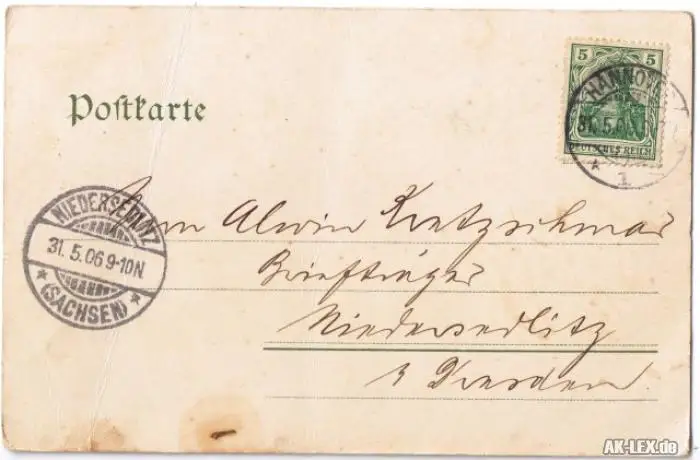 Postkarte
5 5
DEUTSCHES REICH
HANNOVER
31.5.06
* 1 *
NIEDERSEDLITZ
31.5.06 9-10N
* (SACHSEN) *
Herrn Alwin Kretzschmar
Briefträger
Niedersedlitz
b Dresden.
AK-LEX.de